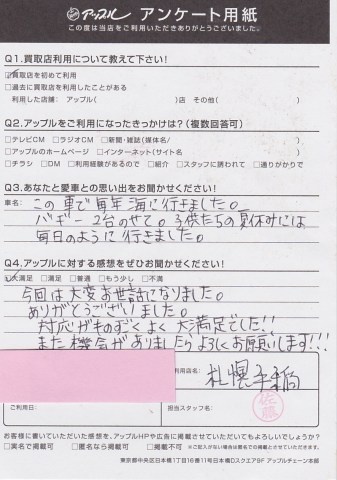 アップル アンケート用紙
この度は当店をご利用いただきありがとうございました。
Q1.買取店利用について教えて下さい!
□買取店を初めて利用
□過去に買取店を利用したことがある
利用した店舗: アップル( )店 その他( )
Q2.アップルをご利用になったきっかけは?(複数回答可)
□テレビCM □ラジオCM □新聞・雑誌(媒体名/ )
□アップルのホームページ □インターネット(サイト名 )
□チラシ □DM □利用経験があるので □紹介 □スタッフに誘われて □通りがかりで
Q3.あなたと愛車との思い出をお聞かせください!
車名:
この車で毎年海に行きました。
バギー2台のせて。子供たちの夏休みには
毎日のように行きました。
Q4.アップルに対する感想をぜひお聞かせください!
□大満足 □満足 □普通 □もう少し □不満
今回は大変お世話になりました。
ありがとうございました。
対応がきもちよく大満足でした!!
また機会がありましたらよろしくお願いします!!!
ご利用店名:
札幌手稲
ご利用日:
担当スタッフ名:
佐藤
お客様に書いていただいた感想を、アップルHPや広告に掲載させていただいてもよろしいでしょうか?
□実名で掲載可 □匿名なら掲載可 □掲載不可 ※ご記入がない場合は匿名での掲載とさせていただきます。
東京都中央区日本橋1丁目16番11号日本橋Dスクエア5F アップルチェーン本部